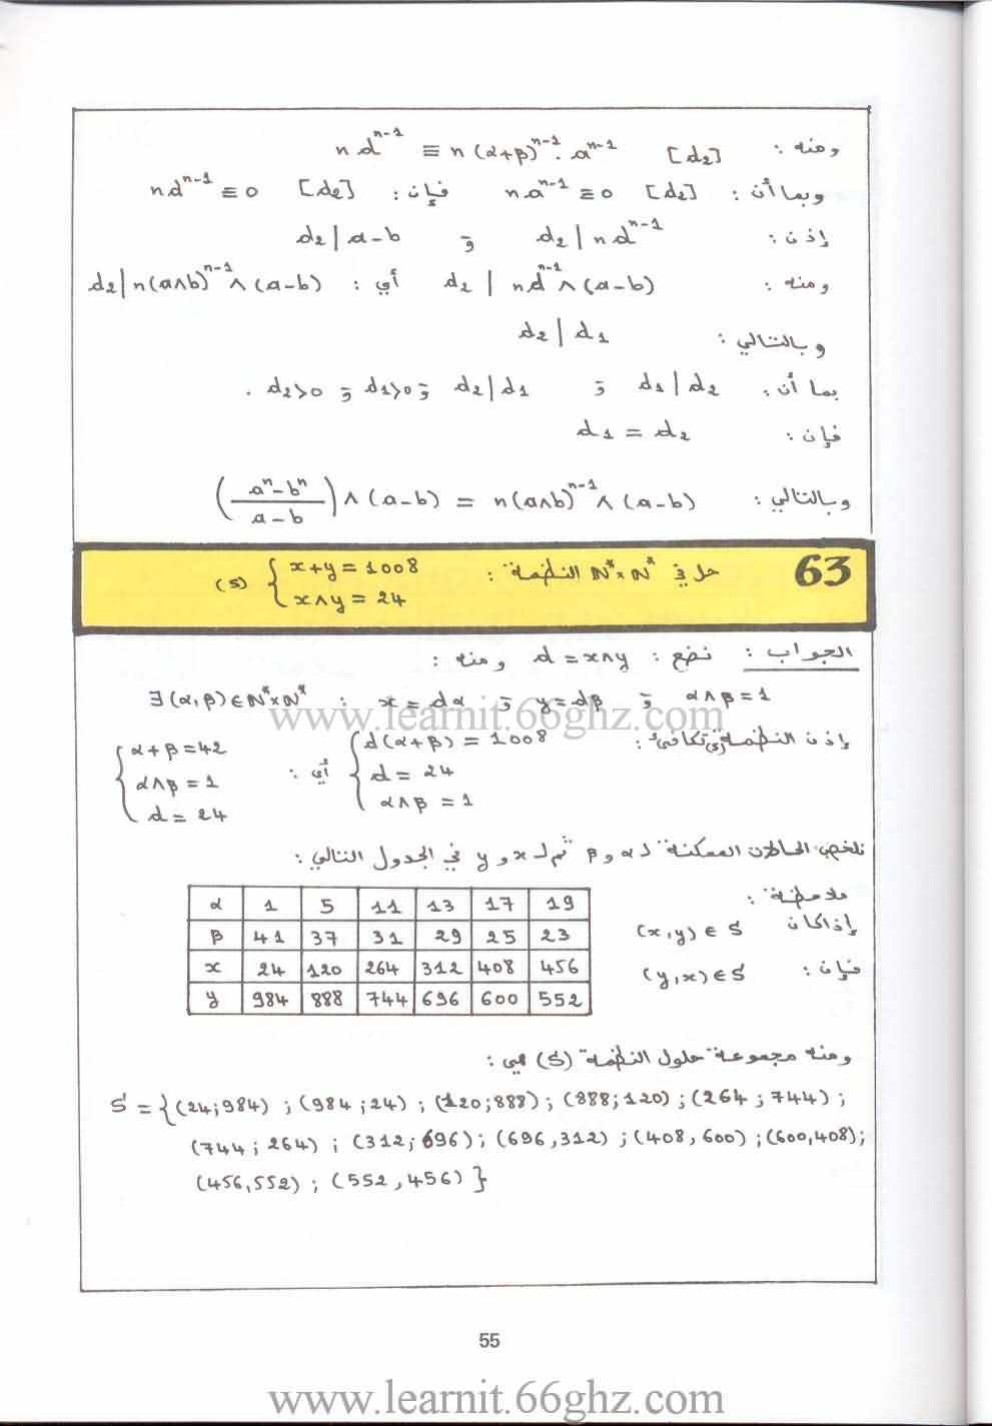 ومنه : nd^{n-1} ≡ n(α+β)^{n-1}·a^{n-1} [d₂]
وبما أن : na^{n-1} ≡ 0 [d₂] فإن : nd^{n-1} ≡ 0 [d₂]
إذن : d₂ | nd^{n-1} و d₂ | a-b
ومنه : d₂ | nd^{n-1} ∧ (a-b) أي : d₂ | n(a∧b)^{n-1} ∧ (a-b)
وبالتالي : d₂ | d₁
بما أن : d₁ | d₂ و d₂ | d₁ و d₁>0 و d₂>0 .
فإن : d₁ = d₂
وبالتالي : (\frac{a^n-b^n}{a-b}) ∧ (a-b) = n(a∧b)^{n-1} ∧ (a-b)
63 حل في N*×N* النظمة : (S) { x+y = 1008
x∧y = 24
الجواب : نضع : d = x∧y ومنه :
∃(α,β)∈N*×N* : x = dα و y = dβ و α∧β = 1
إذن النظمة تكافئ : { d(α+β) = 1008 أي : { α+β = 42
d = 24 α∧β = 1
α∧β = 1 d = 24
نلخص الحالات الممكنة ل α و β ثم ل x و y في الجدول التالي :
α 1 5 11 13 17 19
β 41 37 31 29 25 23
x 24 120 264 312 408 456
y 984 888 744 696 600 552
ملاحظة :
إذا كان (x,y) ∈ S
فإن : (y,x) ∈ S
ومنه مجموعة حلول النظمة (S) هي :
S = {(24;984) ; (984;24) ; (120;888) ; (888;120) ; (264;744) ;
(744;264) ; (312;696) ; (696,312) ; (408,600) ; (600,408);
(456,552) ; (552,456)}
55
www.learnit.66ghz.com
www.learnit.66ghz.com